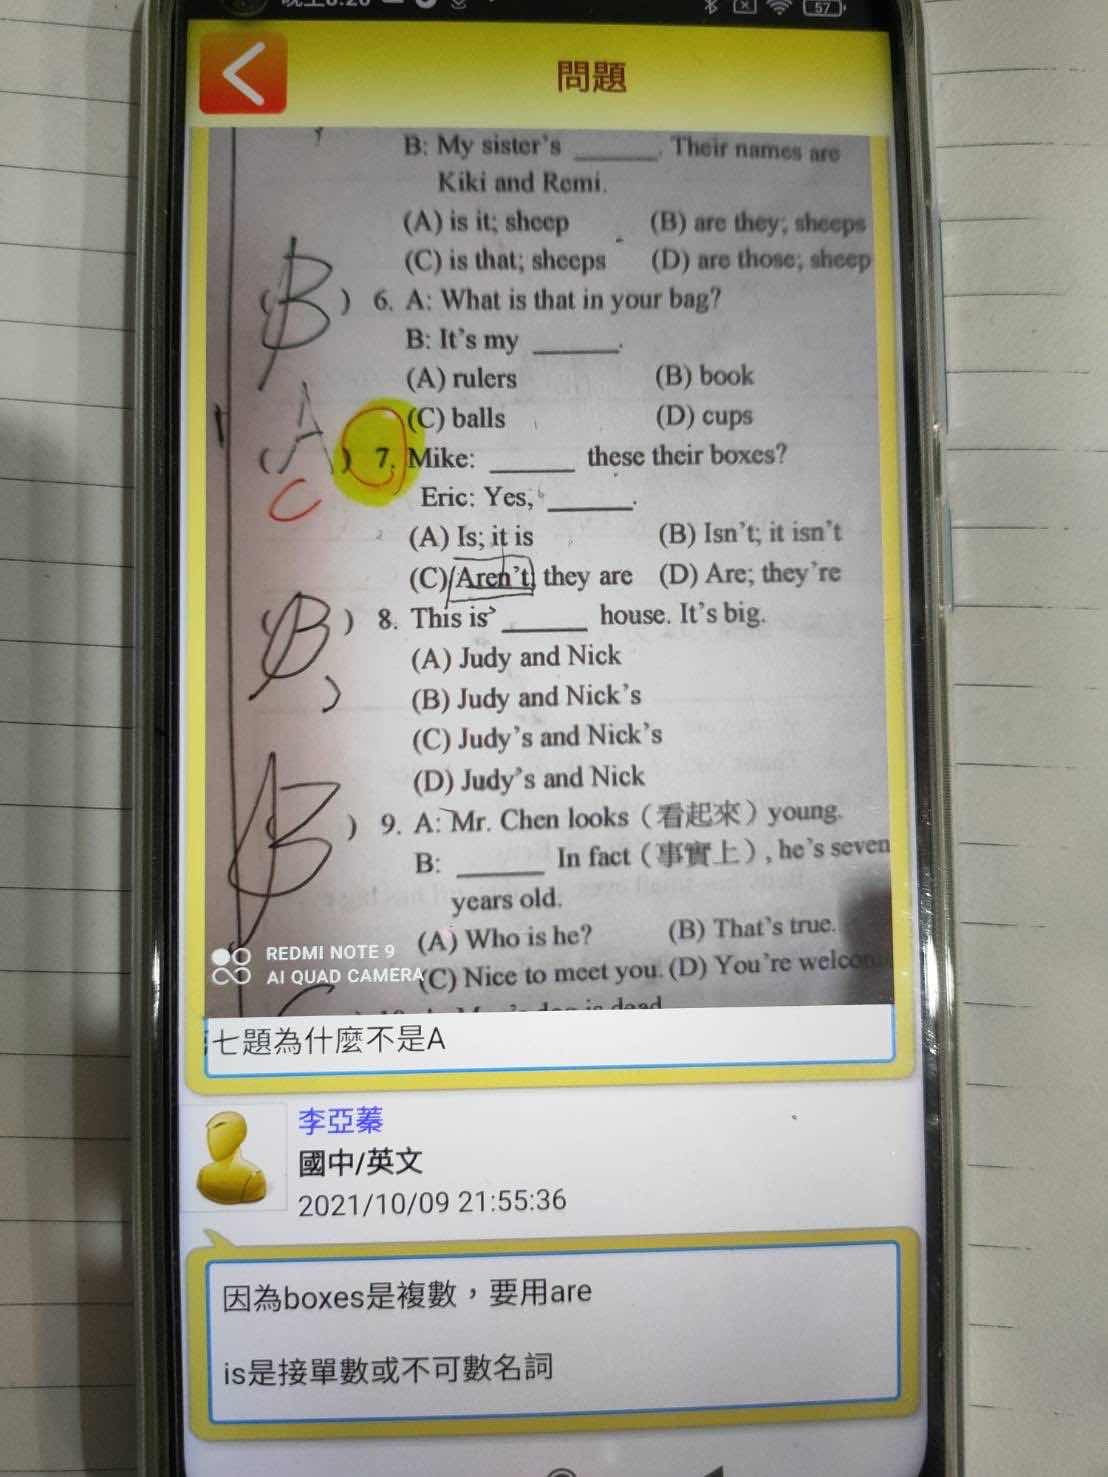 57
問題
B: My sister's ______. Their names are
Kiki and Remi.
(A) is it; sheep (B) are they; sheeps
(C) is that; sheeps (D) are those; sheep
( B ) 6. A: What is that in your bag?
B: It's my ______.
(A) rulers (B) book
(C) balls (D) cups
( A ) 7. Mike: ______ these their boxes?
C
Eric: Yes, ______.
(A) Is; it is (B) Isn't; it isn't
(C) Aren't; they are (D) Are; they're
( B ) 8. This is ______ house. It's big.
(A) Judy and Nick
(B) Judy and Nick's
(C) Judy's and Nick's
(D) Judy's and Nick
( B ) 9. A: Mr. Chen looks（看起來）young.
B: ______ In fact（事實上）, he's seven
years old.
(A) Who is he? (B) That's true.
(C) Nice to meet you. (D) You're welcom
REDMI NOTE 9
AI QUAD CAMERA
七題為什麼不是A
李亞蓁
國中/英文
2021/10/09 21:55:36
因為boxes是複數，要用are
is是接單數或不可數名詞